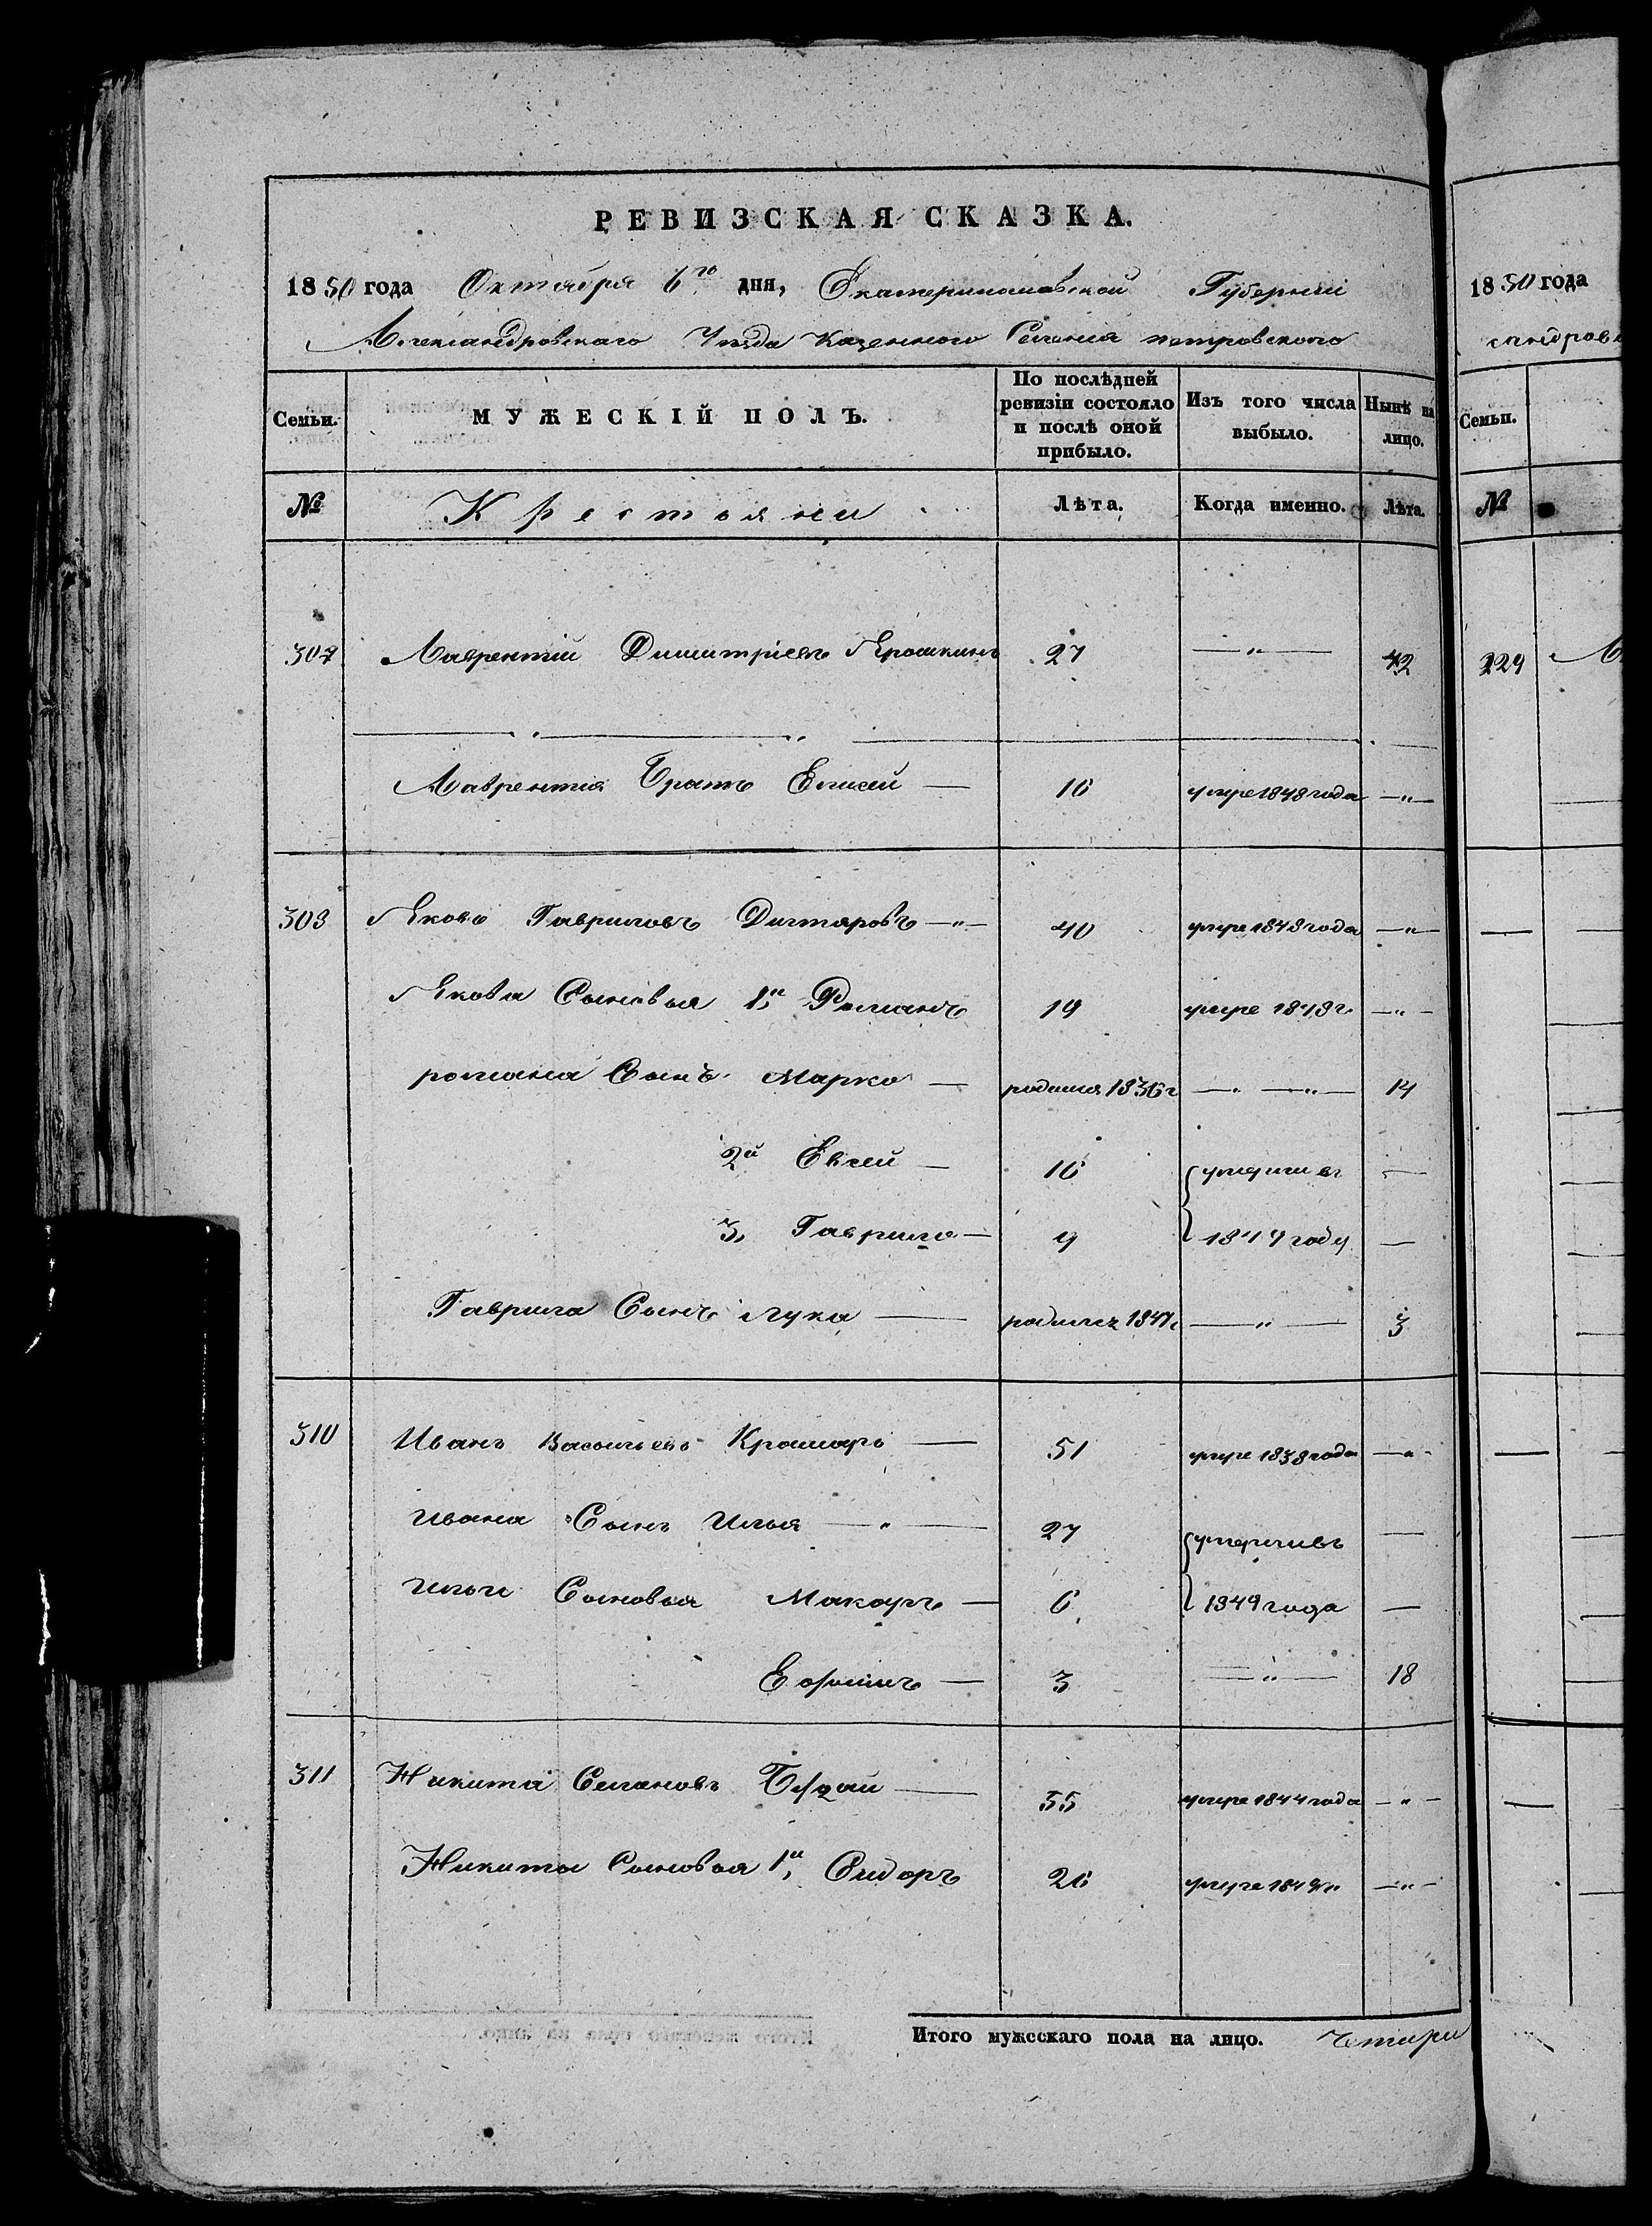 РЕВИЗСКАЯ СКАЗКА.
1850 года Октября 6го дня, Екатеринославской Губернии
Александровского Уезда Казенного Селения петровского
Семьи. МУЖЕСКІЙ ПОЛЪ. По послѣдней ревизіи состояло и послѣ оной прибыло. Изъ того числа выбыло. Нынѣ на лицо.
№ Крестьяни Лѣта. Когда именно. Лѣта.
307 Лаврентий Димитриевъ Ярошкинъ 27 — " — 42
Лаврентия Братъ Елисей — 16 умре 1848 года — " —
308 Яковъ Гавриловъ Дихтяровъ — " — 40 умре 1848 года — " —
Якова Сыновья 1й Романъ 19 умре 1848 г. — " —
романа Сынъ Марко — родился 1836 г — " — " — 14
2й Евсей — 16 умерли въ —
3, Гаврило — 9 1849 году —
Гаврила Сынъ лука — родился 1847 г — " — 3
310 Иванъ Васильевъ Крамаръ — 51 умре 1838 года — " —
ивана Сынъ Илья — " — 27 умерли въ —
ильи Сыновья Макаръ — 6 1849 года —
Ефимъ — 3 — " — 18
311 Никита Семеновъ 55 умре 1844 года — " —
Никиты Сыновья 1й, Сидоръ 26 умре — " —
Итого мужескаго пола на лицо. Четыри
1850 года
сандровс
Семьи.
№
229